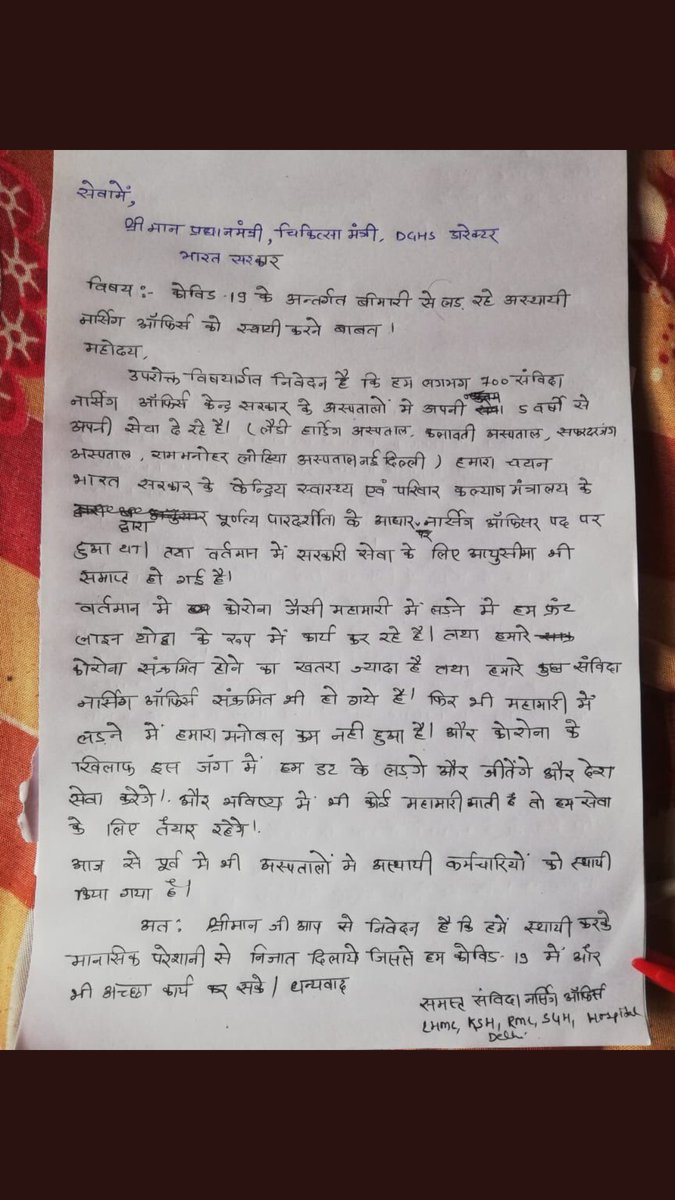 सेवामें,
श्रीमान प्रधानमंत्री, चिकित्सा मंत्री, DGHS डारेक्टर
भारत सरकार
विषय :- कोविड-19 के अन्तर्गत बीमारी से लड़ रहे अस्थायी
नार्सिग ऑफिर्स को स्थायी करने बाबत ।
महोदय,
उपरोक्त विषयार्गत निवेदन है कि हम लगभग 700 संविदा
नार्सिग ऑफिर्स केन्द्र सरकार के अस्पतालों मे अपनी 5 वर्षो से
अपनी सेवा दे रहे है। ( लैडी हार्डिग अस्पताल, कलावती अस्पताल, सफदरजंग
अस्पताल, राम मनोहर लोहिया अस्पताल नई दिल्ली ) हमारा चयन
भारत सरकार के केन्द्रिय स्वास्थ्य एवं परिवार कल्याण मंत्रालय के
द्वारा पूर्णत्य पारदर्शीता के आधार पर नार्सिग ऑफिसर पद पर
हुआ था। तथा वर्तमान में सरकारी सेवा के लिए आयुसीमा भी
समाप्त हो गई है।
वर्तमान मे कोरोना जैसी महामारी में लडने मे हम फ्रंट
लाइन योद्वा के रूप में कार्य कर रहे है। तथा हमारे
कोरोना संक्रमित होने का खतरा ज्यादा है तथा हमारे कुछ संविदा
नार्सिग ऑफिर्स संक्रमित भी हो गये है। फिर भी महामारी में
लड़ने में हमारा मनोबल कम नही हुआ है। और कोरोना के
खिलाफ इस जंग में हम डट के लड़गे और जीतेंगे और देश
सेवा करेगे।. और भविष्य में भी कोई महामारी आती है तो हम सेवा
के लिए तैयार रहेगे।.
आज से पूर्व मे भी अस्पतालों मे अस्थायी कर्मचारियों को स्थायी
किया गया है।
अतः श्रीमान जी आप से निवेदन है कि हमें स्थायी करके
मानसिक परेशानी से निजात दिलाये जिससे हम कोविड-19 में और
भी अच्छा कार्य कर सके। धन्यवाद
समस्त संविदा नर्सिग ऑफिर्स
LHMC, KSH, RML, SJH, Hospital
Delhi.